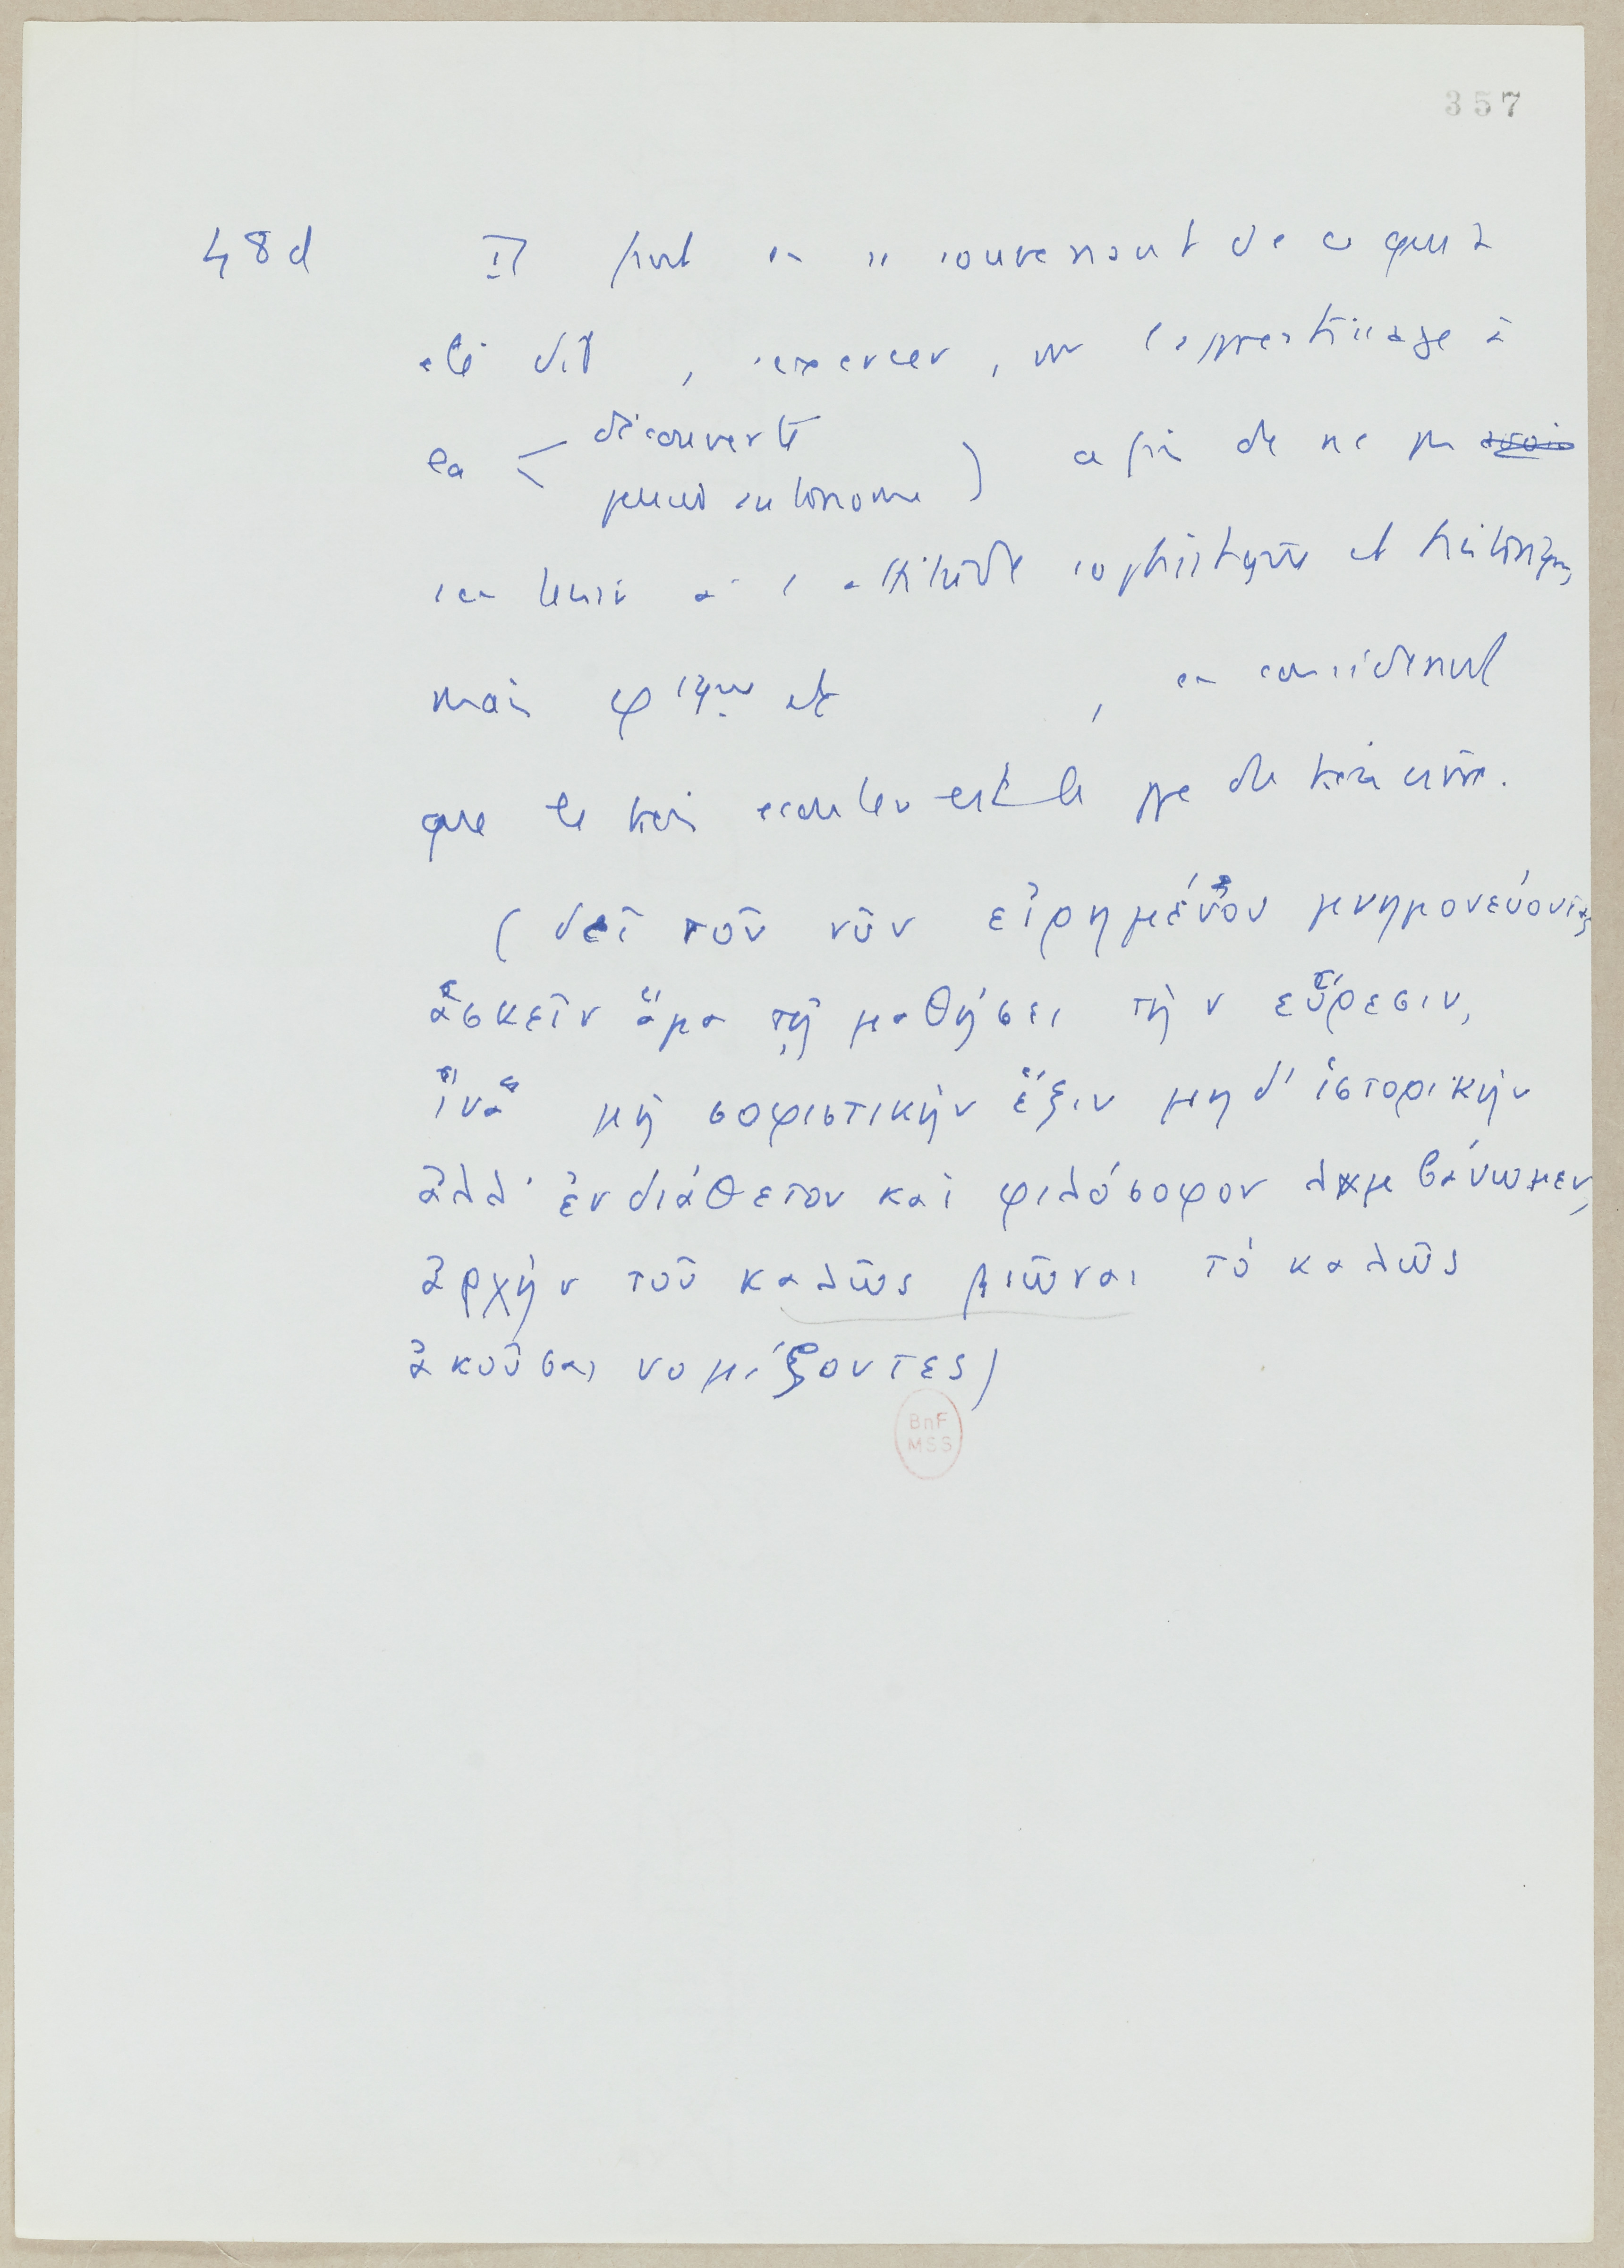 357
48d Il faut en se souvenant de ce qui a
été dit, s'exercer, par l'apprentissage à
la < découverte
pensée autonome ) afin de ne pas avoir
s'en tenir à l'attitude sophistique et historique,
mais φique et , en considérant
que le bien écouter est le ppe du bien vivre.
(δεῖ τοῦ νῦν εἰρημένου μνημονεύοντας
ἀσκεῖν ἅμα τῇ μαθήσει τὴν εὕρεσιν,
ἵνα μὴ σοφιστικὴν ἕξιν μηδ' ἱστορικὴν
ἀλλ' ἐνδιάθετον καὶ φιλόσοφον λαμβάνωμεν,
ἀρχὴν τοῦ καλῶς βιῶναι τὸ καλῶς
ἀκοῦσαι νομίζοντες)
BnF
MSS